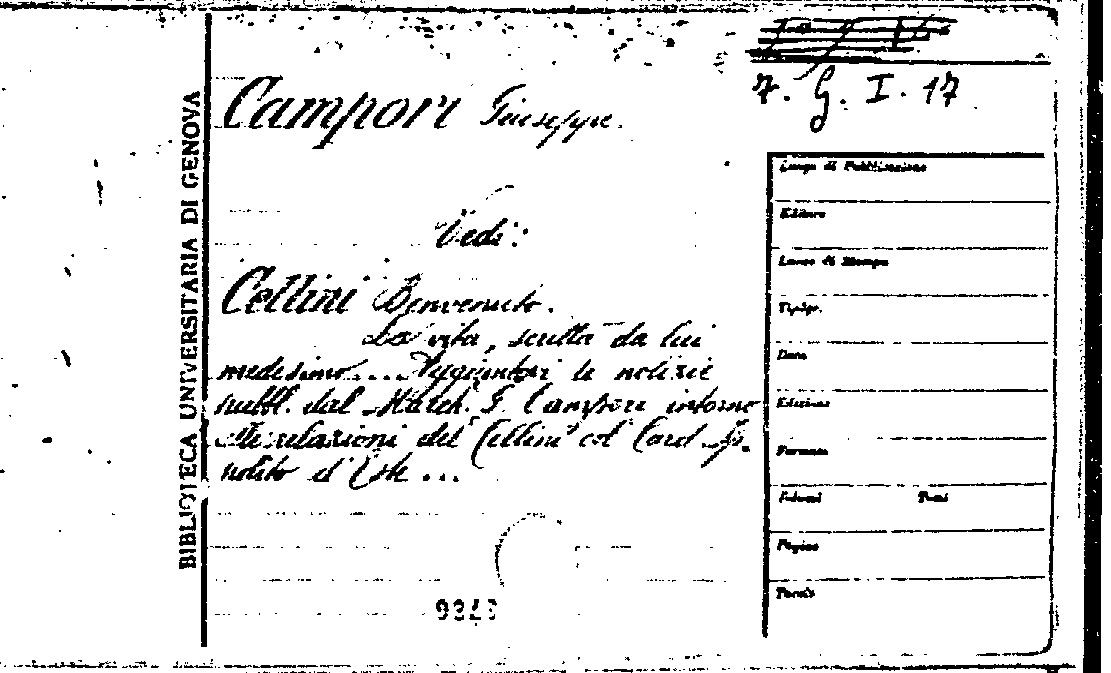 7. G. I. 17
Campori Giuseppe.
Vedi:
Cellini Benvenuto.
La vita, scritta da lui
medesimo.... Aggiuntovi le notizie
pubbl. dal March. G. Campori intorno
alle relazioni del Cellini col Card. Ip-
polito d'Este ...
BIBLIOTECA UNIVERSITARIA DI GENOVA
Luogo di Pubblicazione
Editore
Luogo di Stampa
Tipogr.
Data
Edizione
Formato
Volumi Tomi
Pagine
Tavole